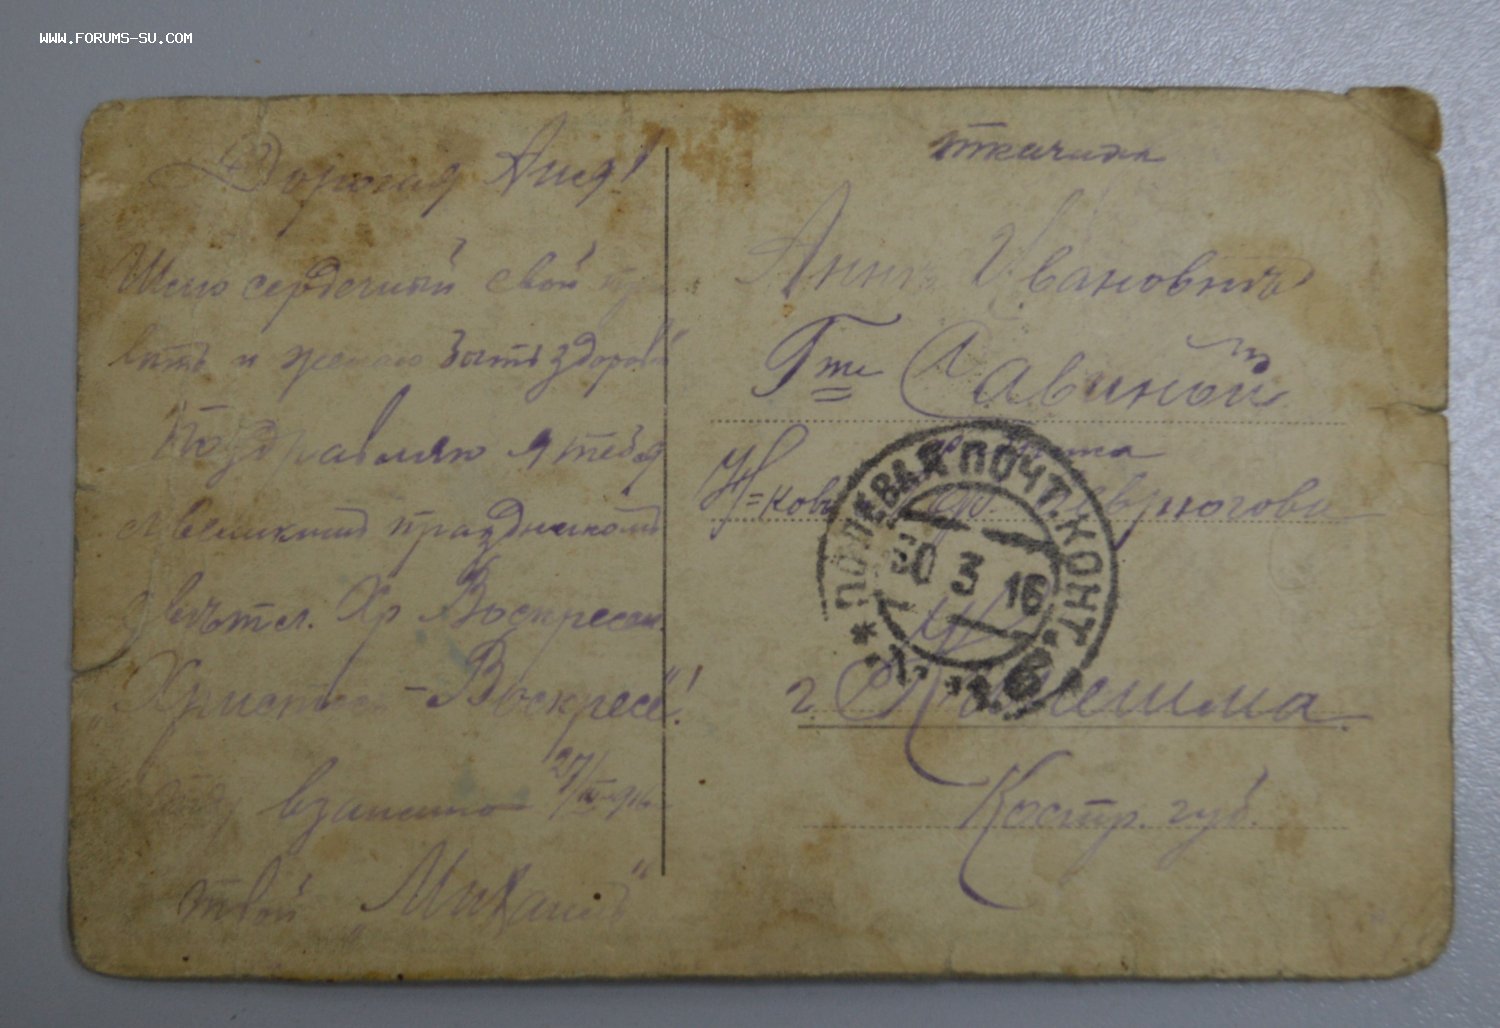 WWW.FORUMS-SU.COM
Дорогая Аня!
Шлю сердечный свой при
вѣтъ и желаю быть здоровой
Поздравляю я тебя
с великимъ праздникомъ
Свѣтл. Хр Воскресен
"Христосъ-Воскресе"!
взаимно 27/III
твой „Михаилъ"
ткачиха
Аннѣ Ивановнѣ
Г-же Савиной
г Кинешма
Костр. губ.
ПОЛЕВАЯ ПОЧТ. КОНТ.
30 3 16